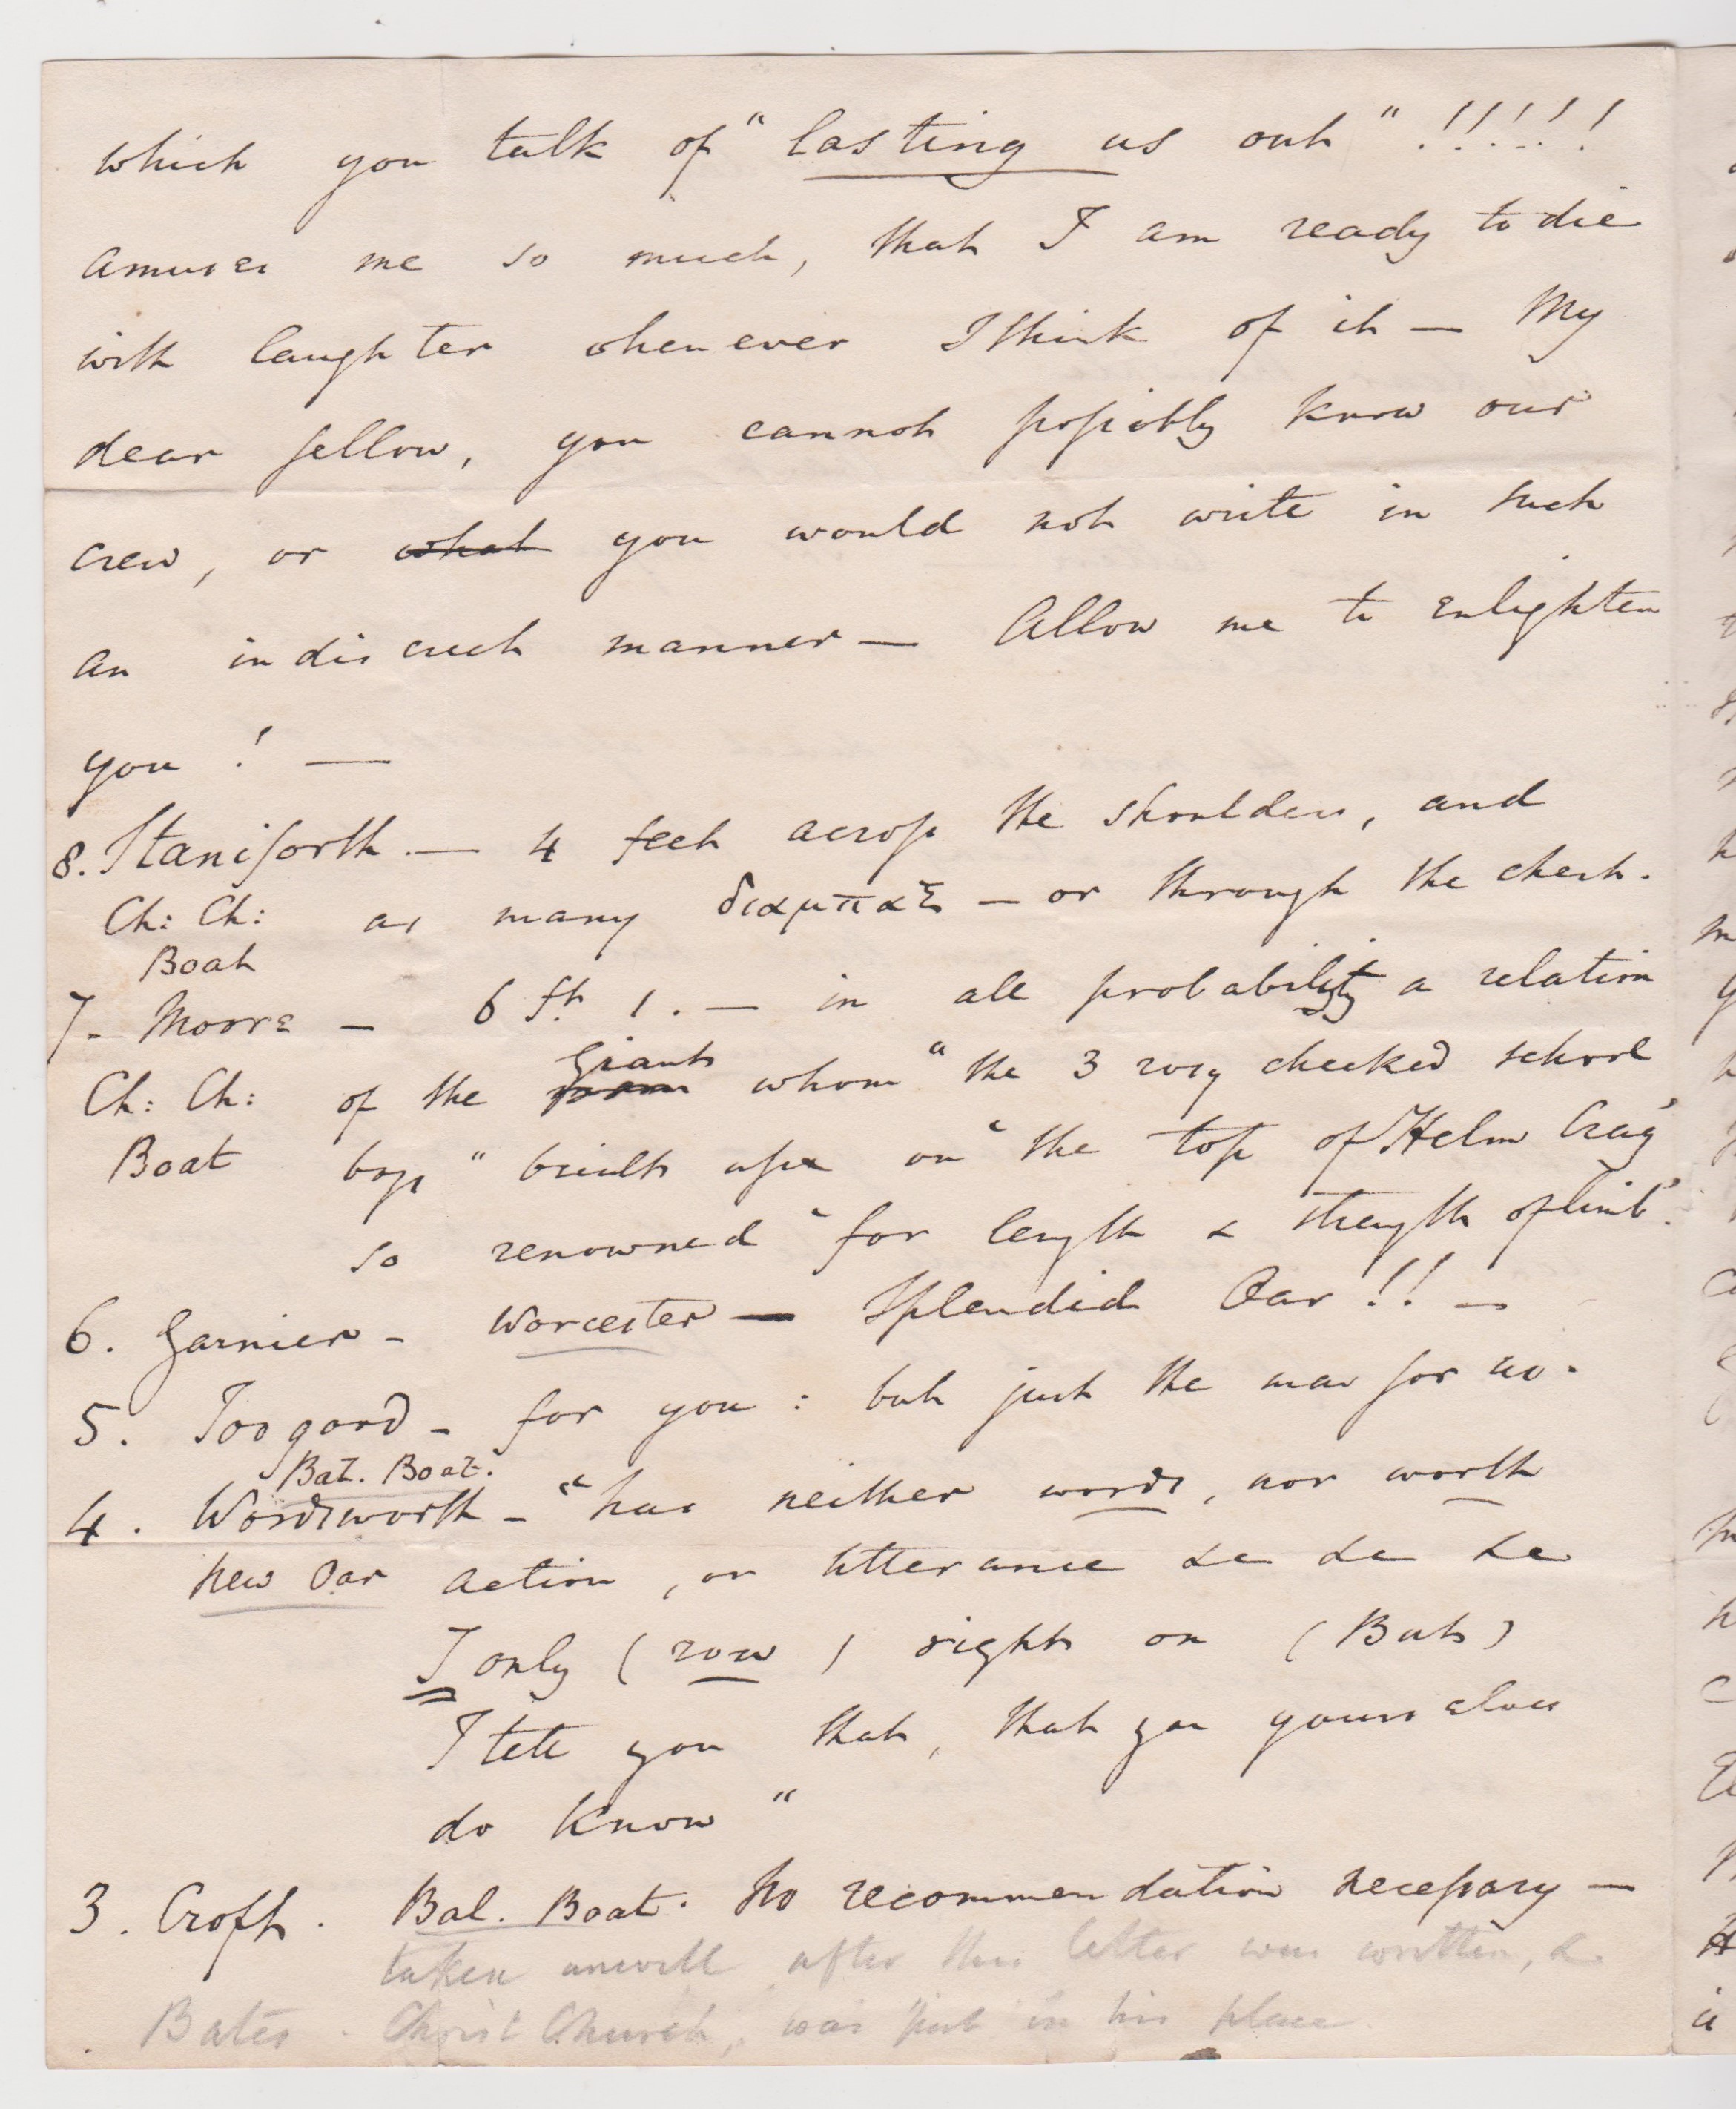 which you talk of "lasting us out" !!!!!
amuses me so much, that I am ready to die
with laughter whenever I think of it — My
dear fellow, you cannot possibly know our
crew, or what you would not write in such
an indiscreet manner — Allow me to enlighten
you ! —
8. Staniforth. — 4 feet across the shoulders, and
Ch: Ch: as many διαμπαξ — or through the chest.
Boat
7 - Moore — 6 ft. 1. — in all probability a relation
Giants
Ch: Ch: of the whom "the 3 rosy cheeked school
Boat boys" built upon "the top of Helm Crag"
so renowned "for length & strength of limb".
6. Garnier - Worcester — Splendid Oar !! —
5. Toogood - for you : but just the man for us.
Bal. Boat.
4. Wordsworth - "has neither words, nor worth
New Oar action, or utterance &c &c &c
I only (row) right on (But)
I tell you that, that you yourselves
do know"
3. Croft. Bal. Boat. No recommendation necessary —
taken unwell after this letter was written, &
. Bates. Christ Church, was put in his place